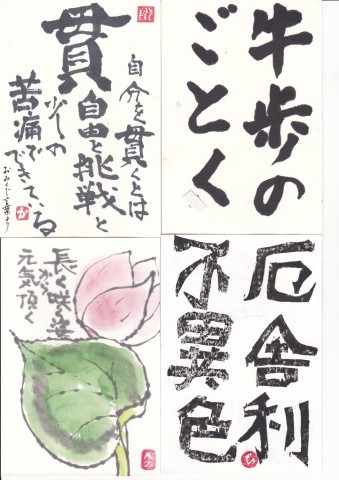 貫
自分を貫くとは
自由と挑戦と
少しの
苦痛で
できている
おみくじ言葉より
牛歩の
ごとく
長く咲く姿
から
元気頂く
厄舎利
不異色